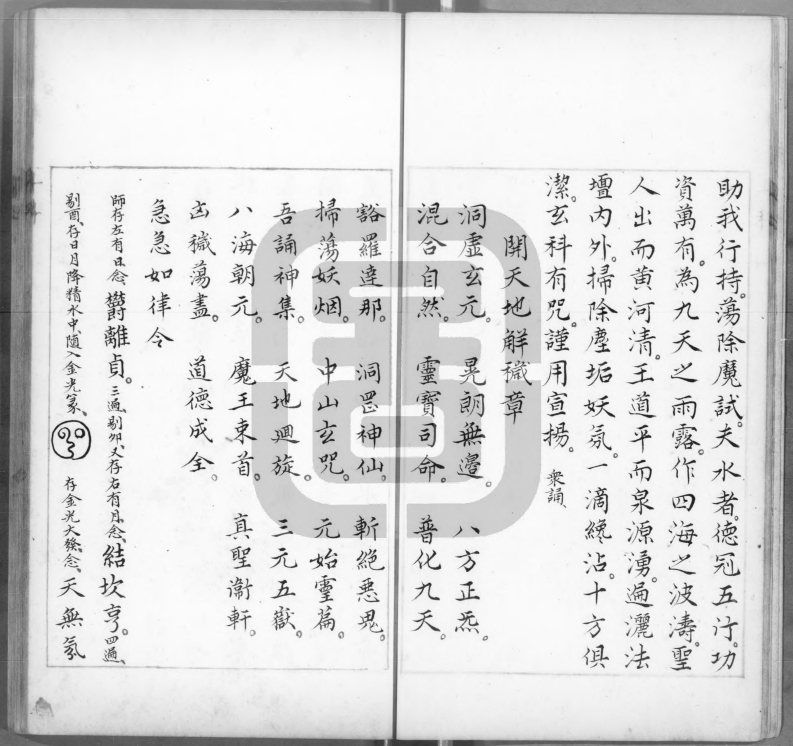 助我行持。蕩除魔試。夫水者。德冠五行。功
資萬有。為九天之雨露。作四海之波濤。聖
人出而黃河清。王道平而泉源湧。遍灑法
壇內外。掃除塵垢妖氛。一滴纔沾。十方俱
潔。玄科有咒。謹用宣揚。 衆誦、
開天地解穢章
洞虛玄元。 晃朗無邊。 八方正炁。
混合自然。 靈寶司命。 普化九天。
豁羅達那。 洞罡神仙。 斬絕悪鬼。
掃蕩妖烟。 中山玄咒。 元始靈篇。
吾誦神集。 天地迴旋。 三元五嶽。
八海朝元。 魔王束首。 真聖衛軒。
凶穢蕩盡。 道德成全。
急急如律令
師存左有日、念、欝離貞。三遍、剔卯、又存右有月、念、結坎亨。四遍、
剔酉、存日月降精水中、随入金光篆、 存金光大發、念、天無氛